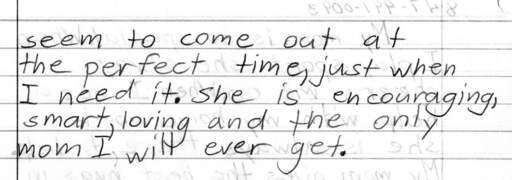 seem to come out at
the perfect time, just when
I need it. She is encouraging,
smart, loving and the only
mom I will ever get.